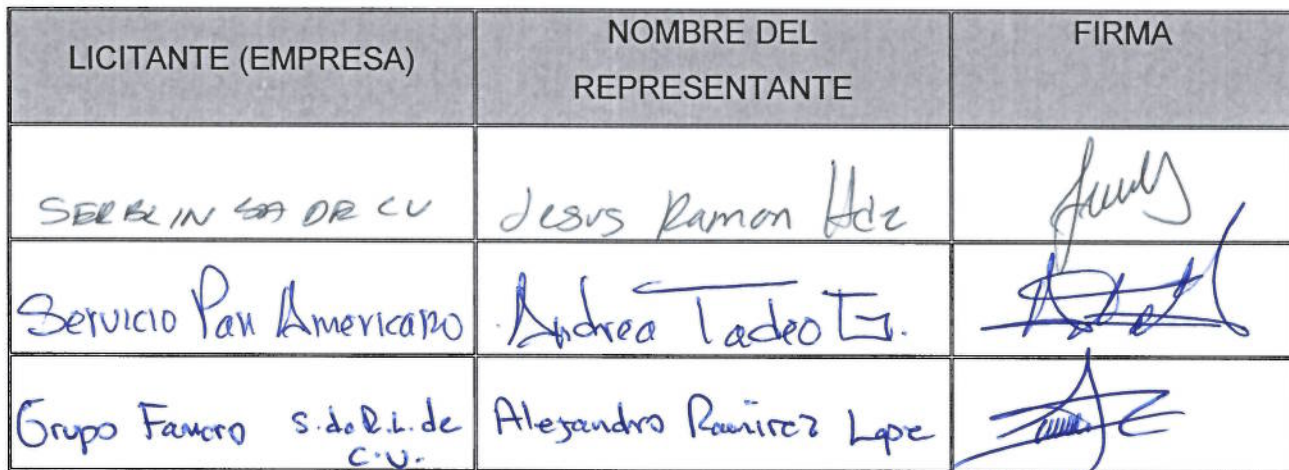 LICITANTE (EMPRESA)
NOMBRE DEL
REPRESENTANTE
FIRMA
SERBLIN SA DE CV
Jesus Ramon Hdz
Servicio Pan Americano
Andrea Tadeo G.
Grupo Famoro S.de.R.L. de
C.V.
Alejandro Ramirez Lope